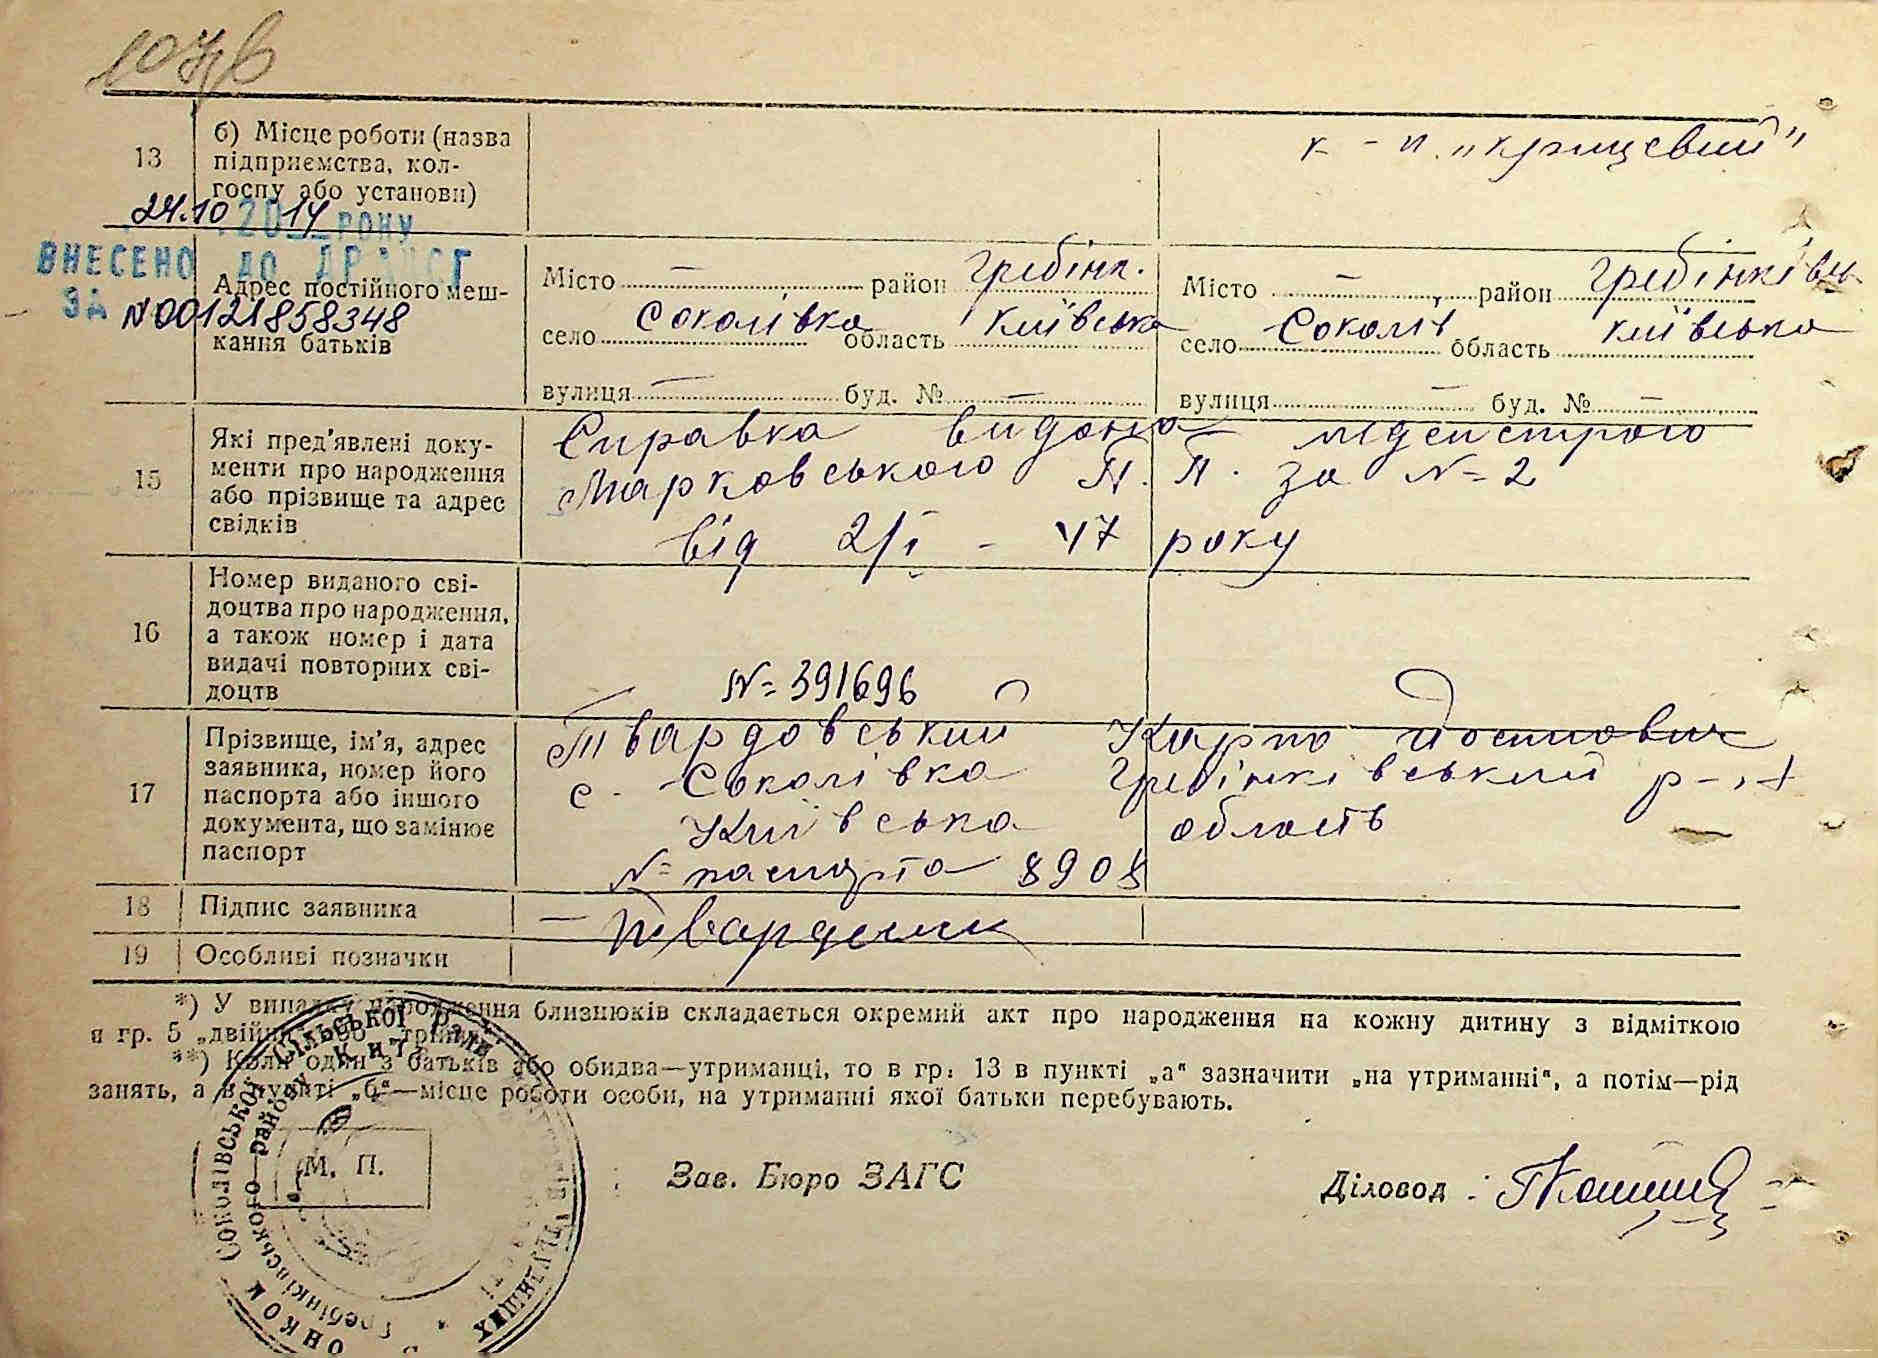 13
б) Місце роботи (назва
підприємства, кол-
госпу або установи)
к-п „крищевий"
24.10 2014 РОКУ
ВНЕСЕНО ДО ДРАЦСГ
ЗА №00121858348
Адрес постійного меш-
кання батьків
Місто — район Гребінк.
село Соколівка область Київська
вулиця — буд. № —
Місто — район Гребінківсь
село Соколів область Київська
вулиця — буд. № —
15
Які пред'явлені доку-
менти про народження
або прізвище та адрес
свідків
Справка видана медсистрою
Марковського П. П. за №=2
від 2/I - 47 року
16
Номер виданого сві-
доцтва про народження,
а також номер і дата
видачі повторних сві-
доцтв
№=391696
17
Прізвище, ім'я, адрес
заявника, номер його
паспорта або іншого
документа, що замінює
паспорт
Твардовський Карпо Йосипович
с. Соколівка Гребінківський р-н
Київська область
№= паспорта 8908
18 Підпис заявника
19 Особливі позначки
*) У випадку народження близнюків складається окремий акт про народження на кожну дитину з відміткою
в гр. 5 „двійня" або „трійня".
**) Коли один з батьків або обидва—утриманці, то в гр. 13 в пункті „а" зазначити „на утриманні", а потім—рід
занять, а в пункті „б"—місце роботи особи, на утриманні якої батьки перебувають.
М. П.
Зав. Бюро ЗАГС
Діловод
Соколівської сільської ради
Гребінківського району